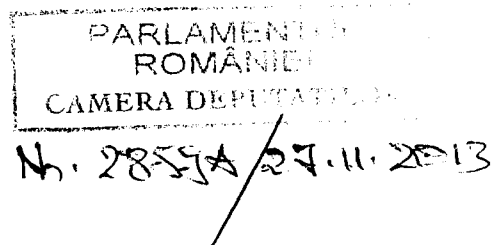 PARLAMENTUL
ROMÂNIEI
CAMERA DEPUTAȚILOR
Nr. 2859A/27.11.2013